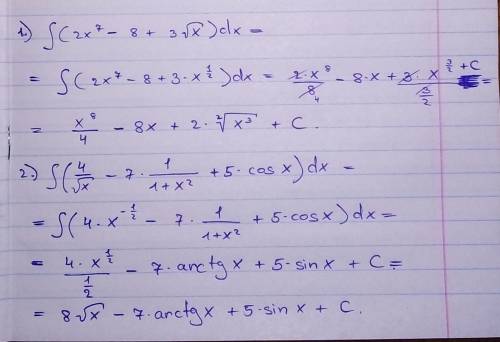 1.) ∫(2x⁷ − 8 + 3√x)dx =
= ∫(2x⁷ − 8 + 3·x^(1/2))dx = 2·x⁸/8 4 − 8·x + 3·x^(3/2)/(3/2) + C =
= x⁸/4 − 8x + 2·²√x³ + C.
2.) ∫(4/√x − 7·1/(1+x²) + 5·cos x)dx =
= ∫(4·x^(−1/2) − 7·1/(1+x²) + 5·cosx)dx =
= 4·x^(1/2)/(1/2) − 7·arctgx + 5·sinx + C =
= 8√x − 7·arctgx + 5·sinx + C.